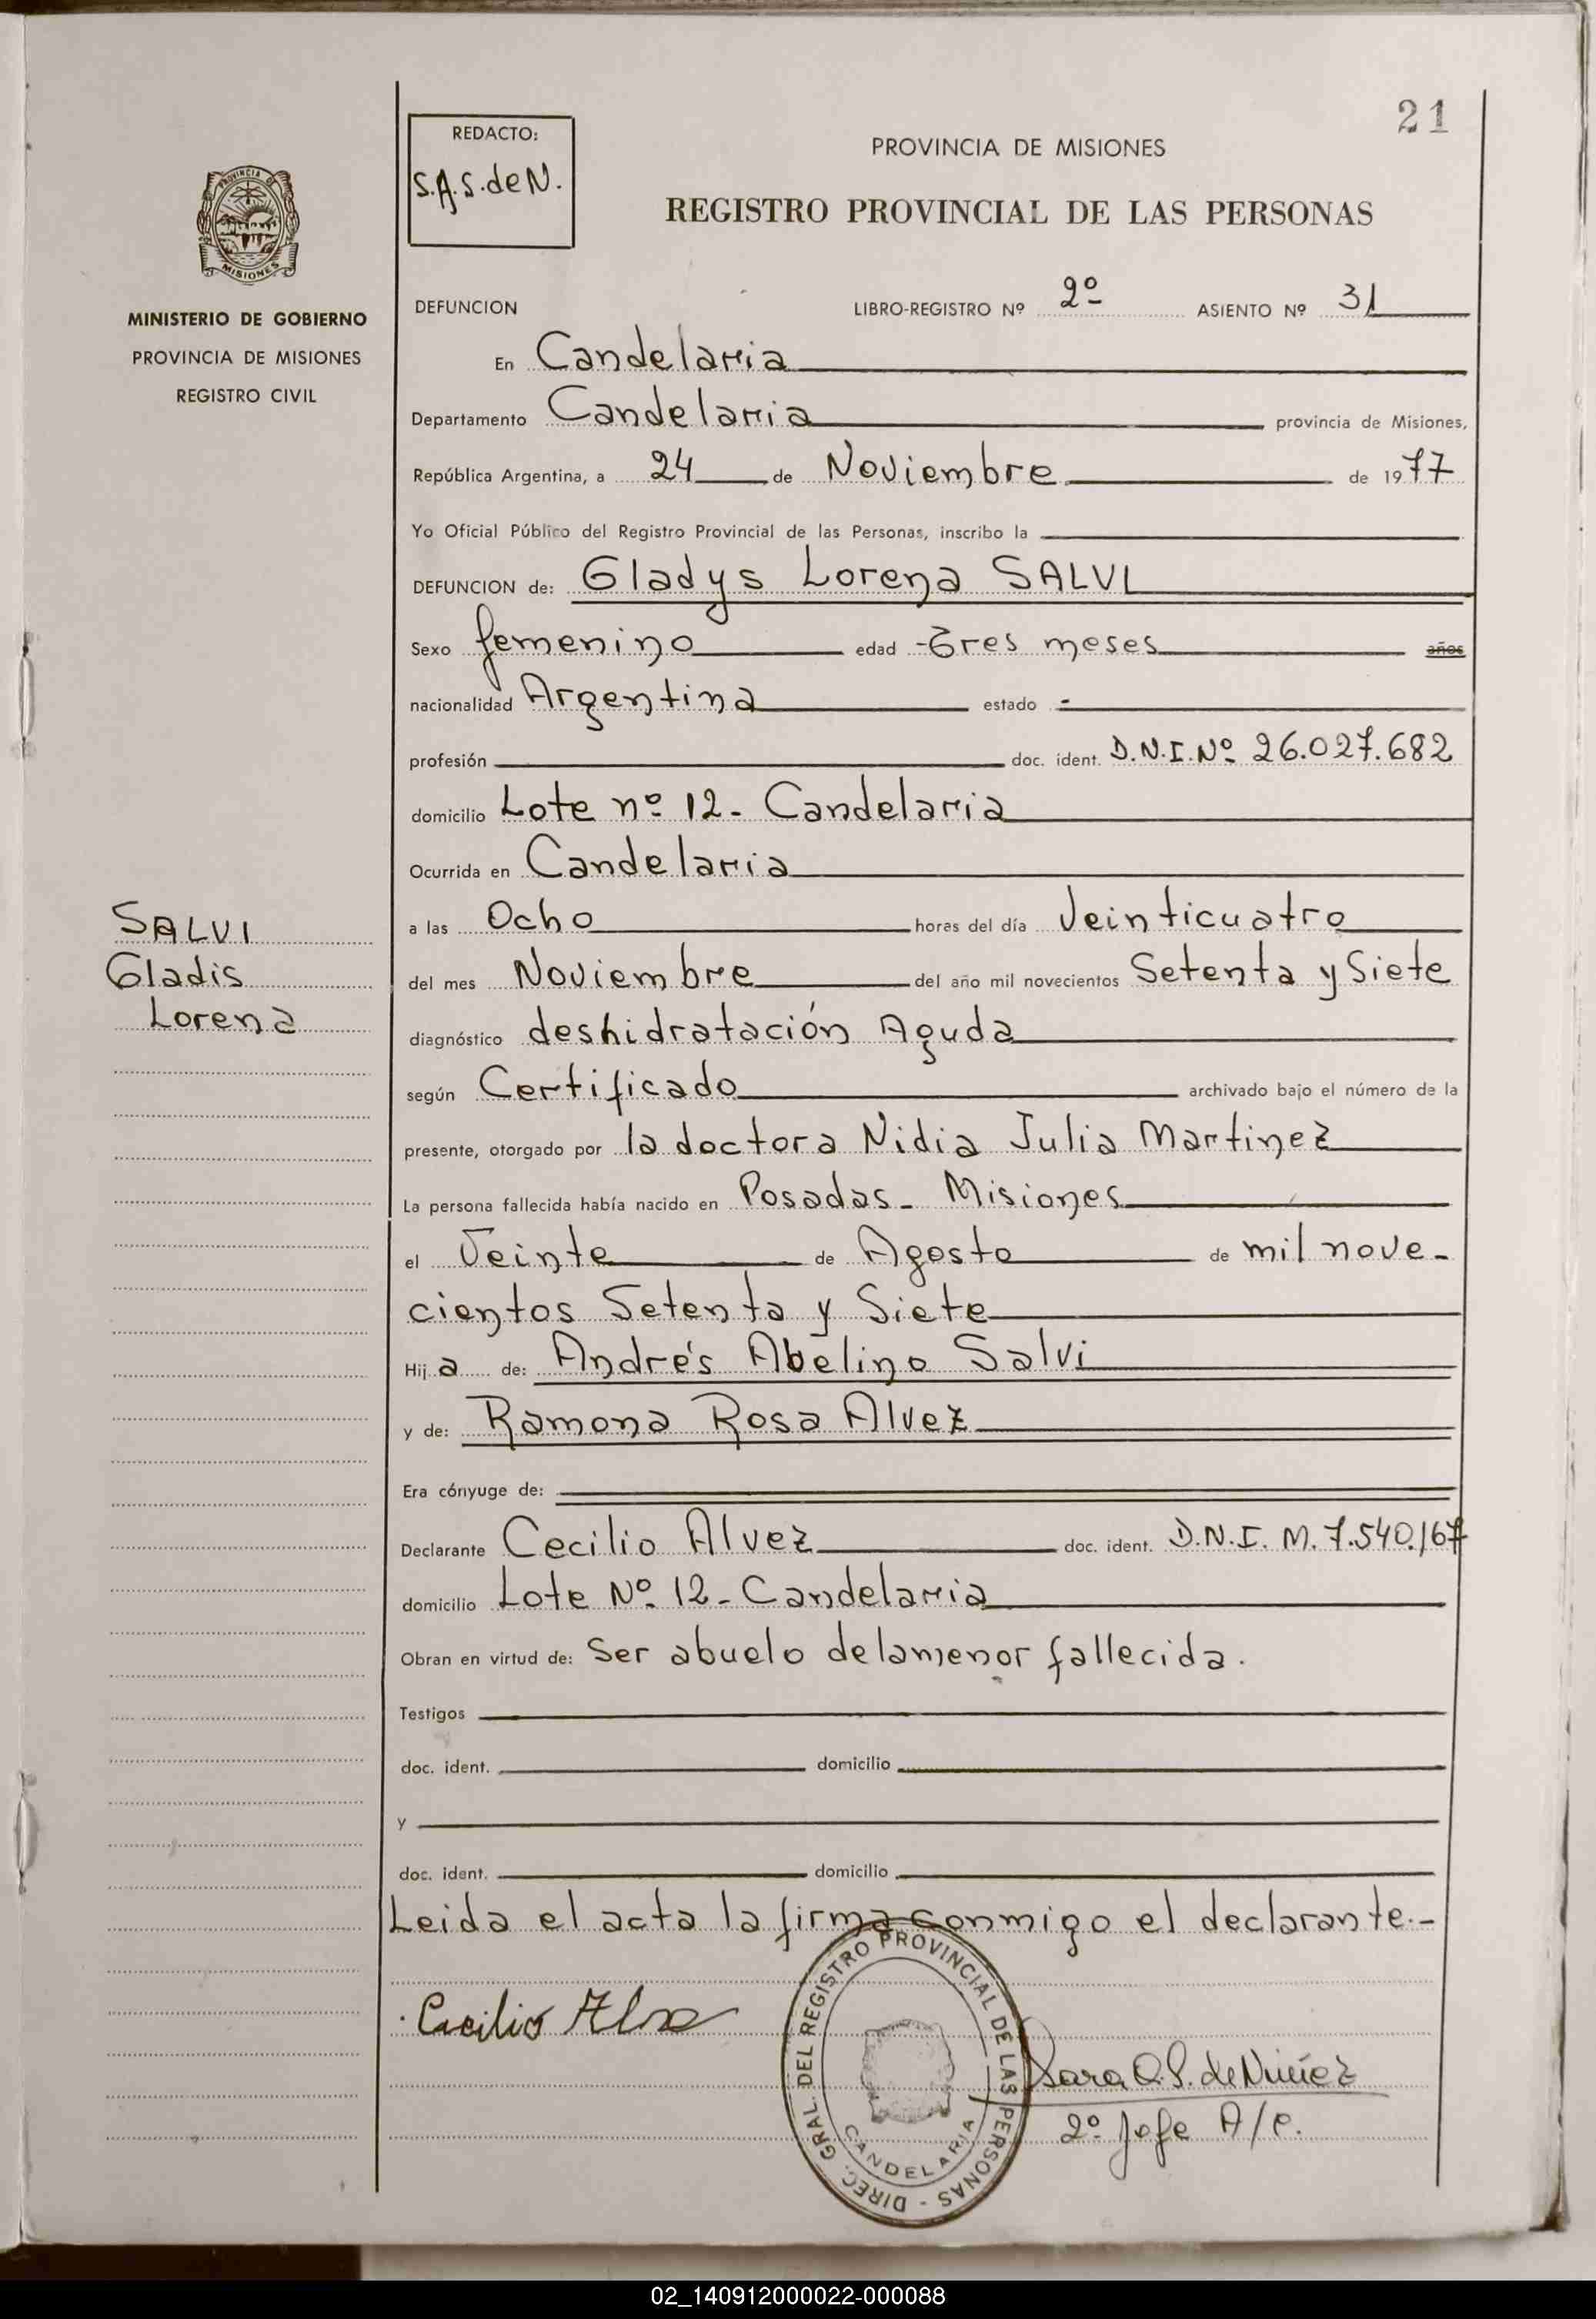 21
REDACTO:
S.A.S.deN.
PROVINCIA DE MISIONES
REGISTRO PROVINCIAL DE LAS PERSONAS
PROVINCIA DE
MISIONES
MINISTERIO DE GOBIERNO
PROVINCIA DE MISIONES
REGISTRO CIVIL
DEFUNCION LIBRO-REGISTRO Nº 2º ASIENTO Nº 31
En Candelaria
Departamento Candelaria provincia de Misiones,
República Argentina, a 24 de Noviembre de 1977
Yo Oficial Público del Registro Provincial de las Personas, inscribo la
DEFUNCION de: Gladys Lorena SALVI
Sexo femenino edad Tres meses años
nacionalidad Argentina estado -
profesión doc. ident. D.N.I.Nº 26.027.682
domicilio Lote nº 12- Candelaria
Ocurrida en Candelaria
a las Ocho horas del día Veinticuatro
del mes Noviembre del año mil novecientos Setenta y Siete
diagnóstico deshidratación Aguda
según Certificado archivado bajo el número de la
presente, otorgado por la doctora Nidia Julia Martinez
La persona fallecida había nacido en Posadas- Misiones
el Veinte de Agosto de mil nove-
cientos Setenta y Siete
Hija de: Andrés Abelino Salvi
y de: Ramona Rosa Alvez
Era cónyuge de:
Declarante Cecilio Alvez doc. ident. D.N.I. M. 7.540.167
domicilio Lote Nº 12- Candelaria
Obran en virtud de: Ser abuelo delamenor fallecida.
Testigos
doc. ident. domicilio
y
doc. ident. domicilio
Leida el acta la firma conmigo el declarante.-
SALVI
Gladis
Lorena
Cecilio
DIREC. GRAL. DEL REGISTRO PROVINCIAL DE LAS PERSONAS -
CANDELARIA
Sara Q.S. de Nuñez
2º Jefe A/c.
02_140912000022-000088